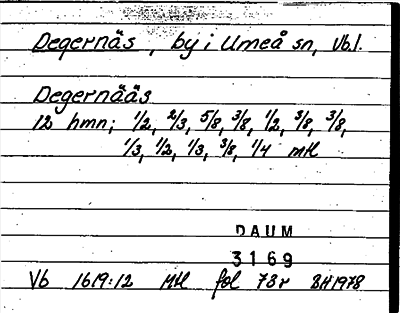 Degernäs, by i Umeå sn, Vbl.
Degernääs
12 hmn; 1/2, 2/3, 5/8, 3/8, 1/2, 3/8, 3/8,
1/3, 1/2, 1/3, 3/8, 1/4 mtl
DAUM
3169
Vb 1619:12 Mtl fol 73r BH1978